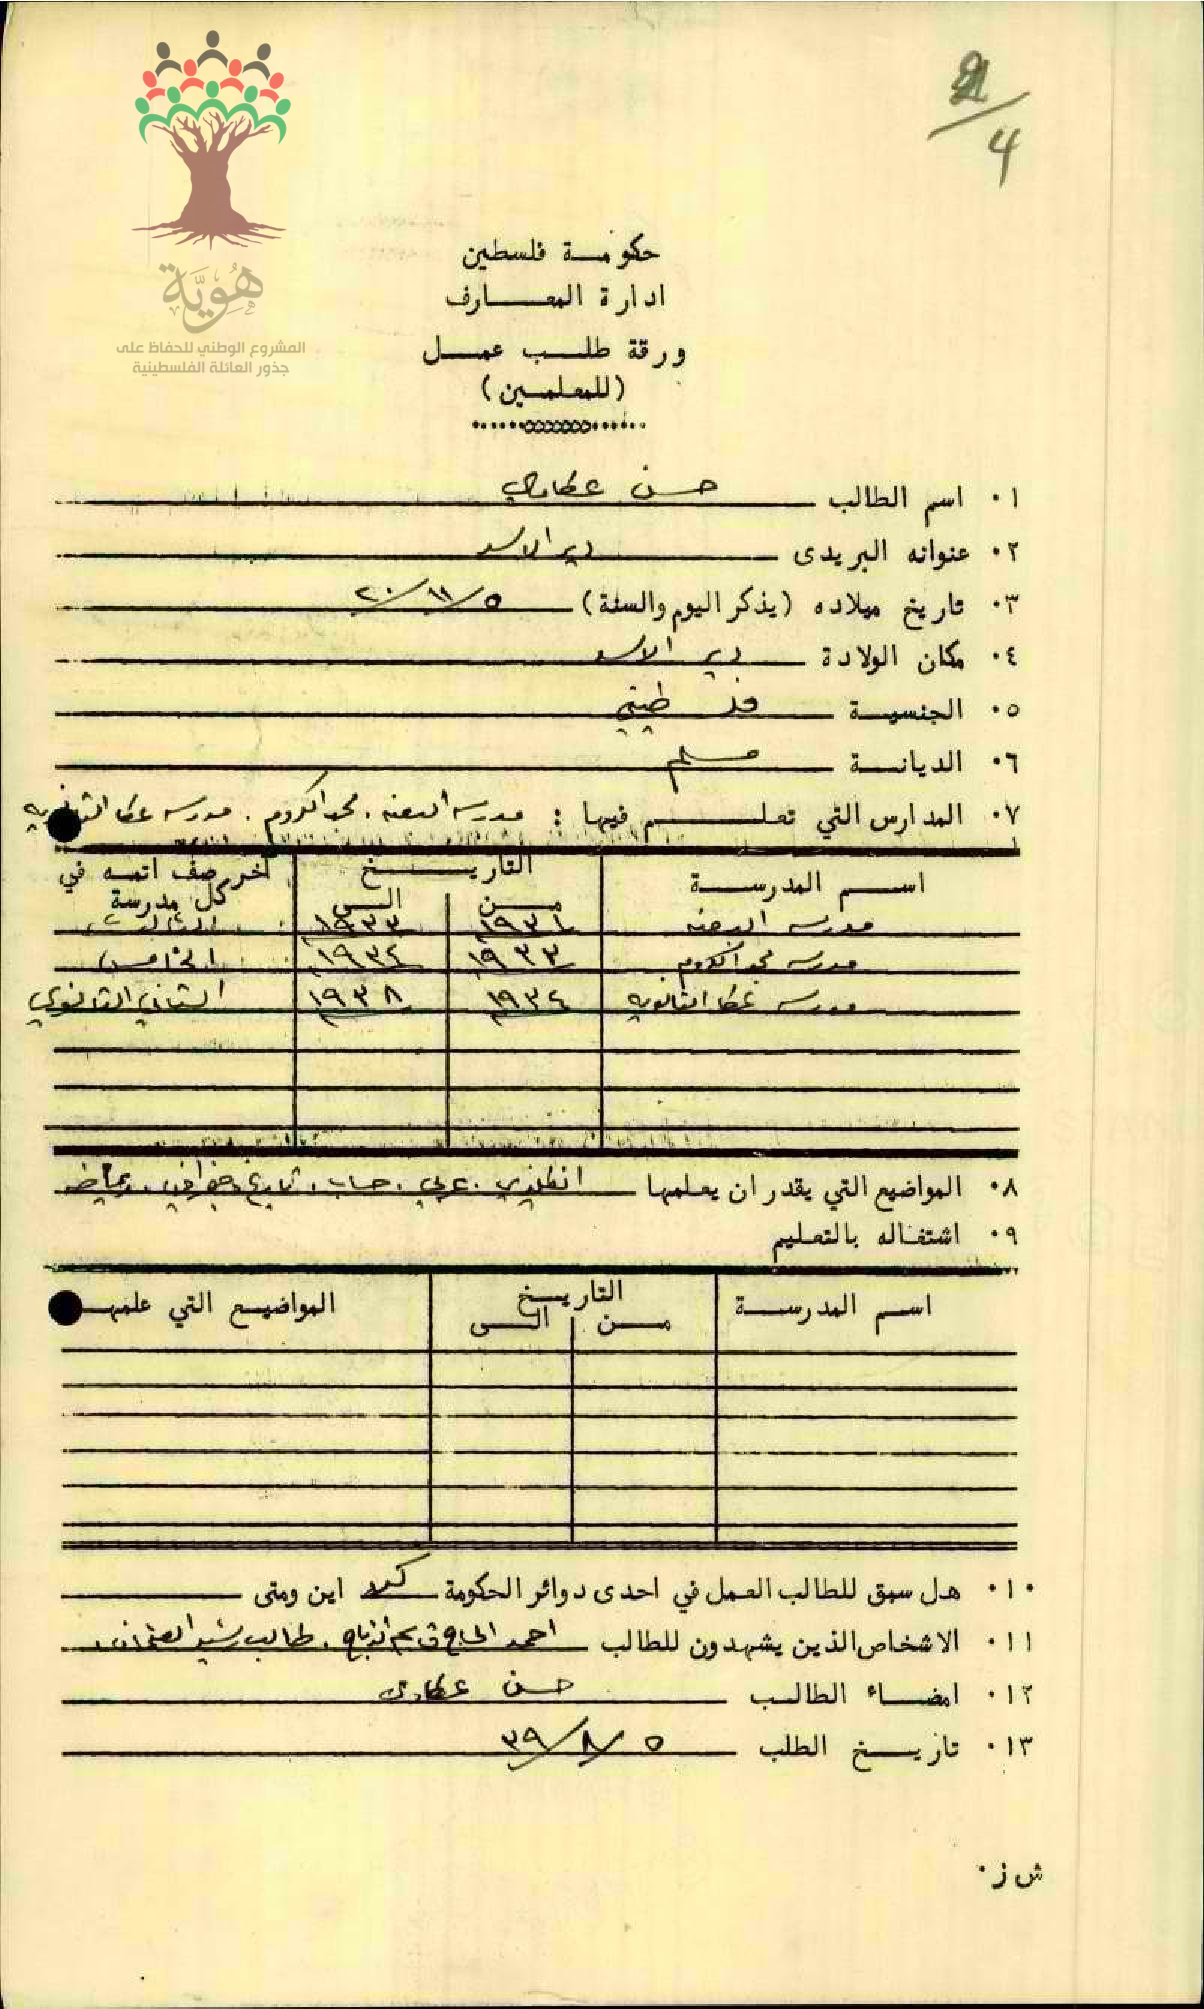 4
هوية
المشروع الوطني للحفاظ على
جذور العائلة الفلسطينية
حكومة فلسطين
ادارة المعارف
ورقة طلب عمل
(للمعلمين)
١٠ اسم الطالب حسن عطاوي
٢٠ عنوانه البريدى دير الاسد
٣٠ تاريخ ميلاده (يذكر اليوم والسنة) ٥/١١/٢٠
٤٠ مكان الولادة دير الاسد
٥٠ الجنسية فلسطيني
٦٠ الديانة مسلم
٧٠ المدارس التي تعلم فيها : مدرسه البعنه . مجد الكروم . مدرسه عكا الثانويه
اسم المدرسة التاريخ آخر صف اتمه في
من الى كل مدرسة
مدرسه البعنه ١٩٣١ ١٩٣٣ الثالث
مدرسه مجد الكروم ١٩٣٣ ١٩٣٤ الخامس
مدرسه عكا الثانويه ١٩٣٤ ١٩٣٨ الثاني الثانوي
٨٠ المواضيع التي يقدر ان يعلمها انكليزي . عربي . حساب . تاريخ . جغرافي .
٩٠ اشتغاله بالتعليم
اسم المدرسة التاريخ المواضيع التي علمها
من الى
١٠٠ هل سبق للطالب العمل في احدى دوائر الحكومة كلا اين ومتى
١١٠ الاشخاص الذين يشهدون للطالب احمد الحاج . طالب رشيد
١٢٠ امضاء الطالب حسن عطاوي
١٣٠ تاريخ الطلب ٥/٨/٣٩
ش ز٠